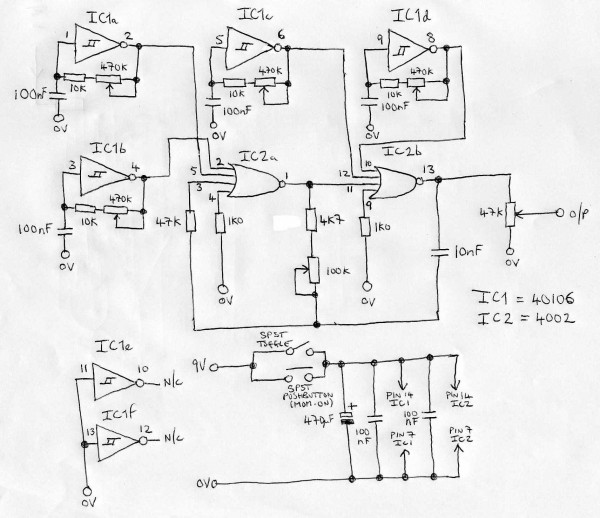 IC1a
1
2
10K
470K
100nF
0V
IC1c
5
6
10K
470K
100nF
0V
IC1d
9
8
10K
470K
100nF
0V
IC1b
3
4
10K
470K
100nF
0V
IC2a
2
5
3
4
1
47K
1K0
0V
4K7
100K
IC2b
10
12
11
9
13
1K0
0V
10nF
47K
O/P
0V
IC1 = 40106
IC2 = 4002
IC1e
11
10
N/C
IC1f
13
12
N/C
0V
9V
SPST
TOGGLE
SPST
PUSHBUTTON
(MOM-ON)
+
470µF
100
nF
PIN 14
IC1
PIN 7
IC1
100
nF
PIN 14
IC2
PIN 7
IC2
0V